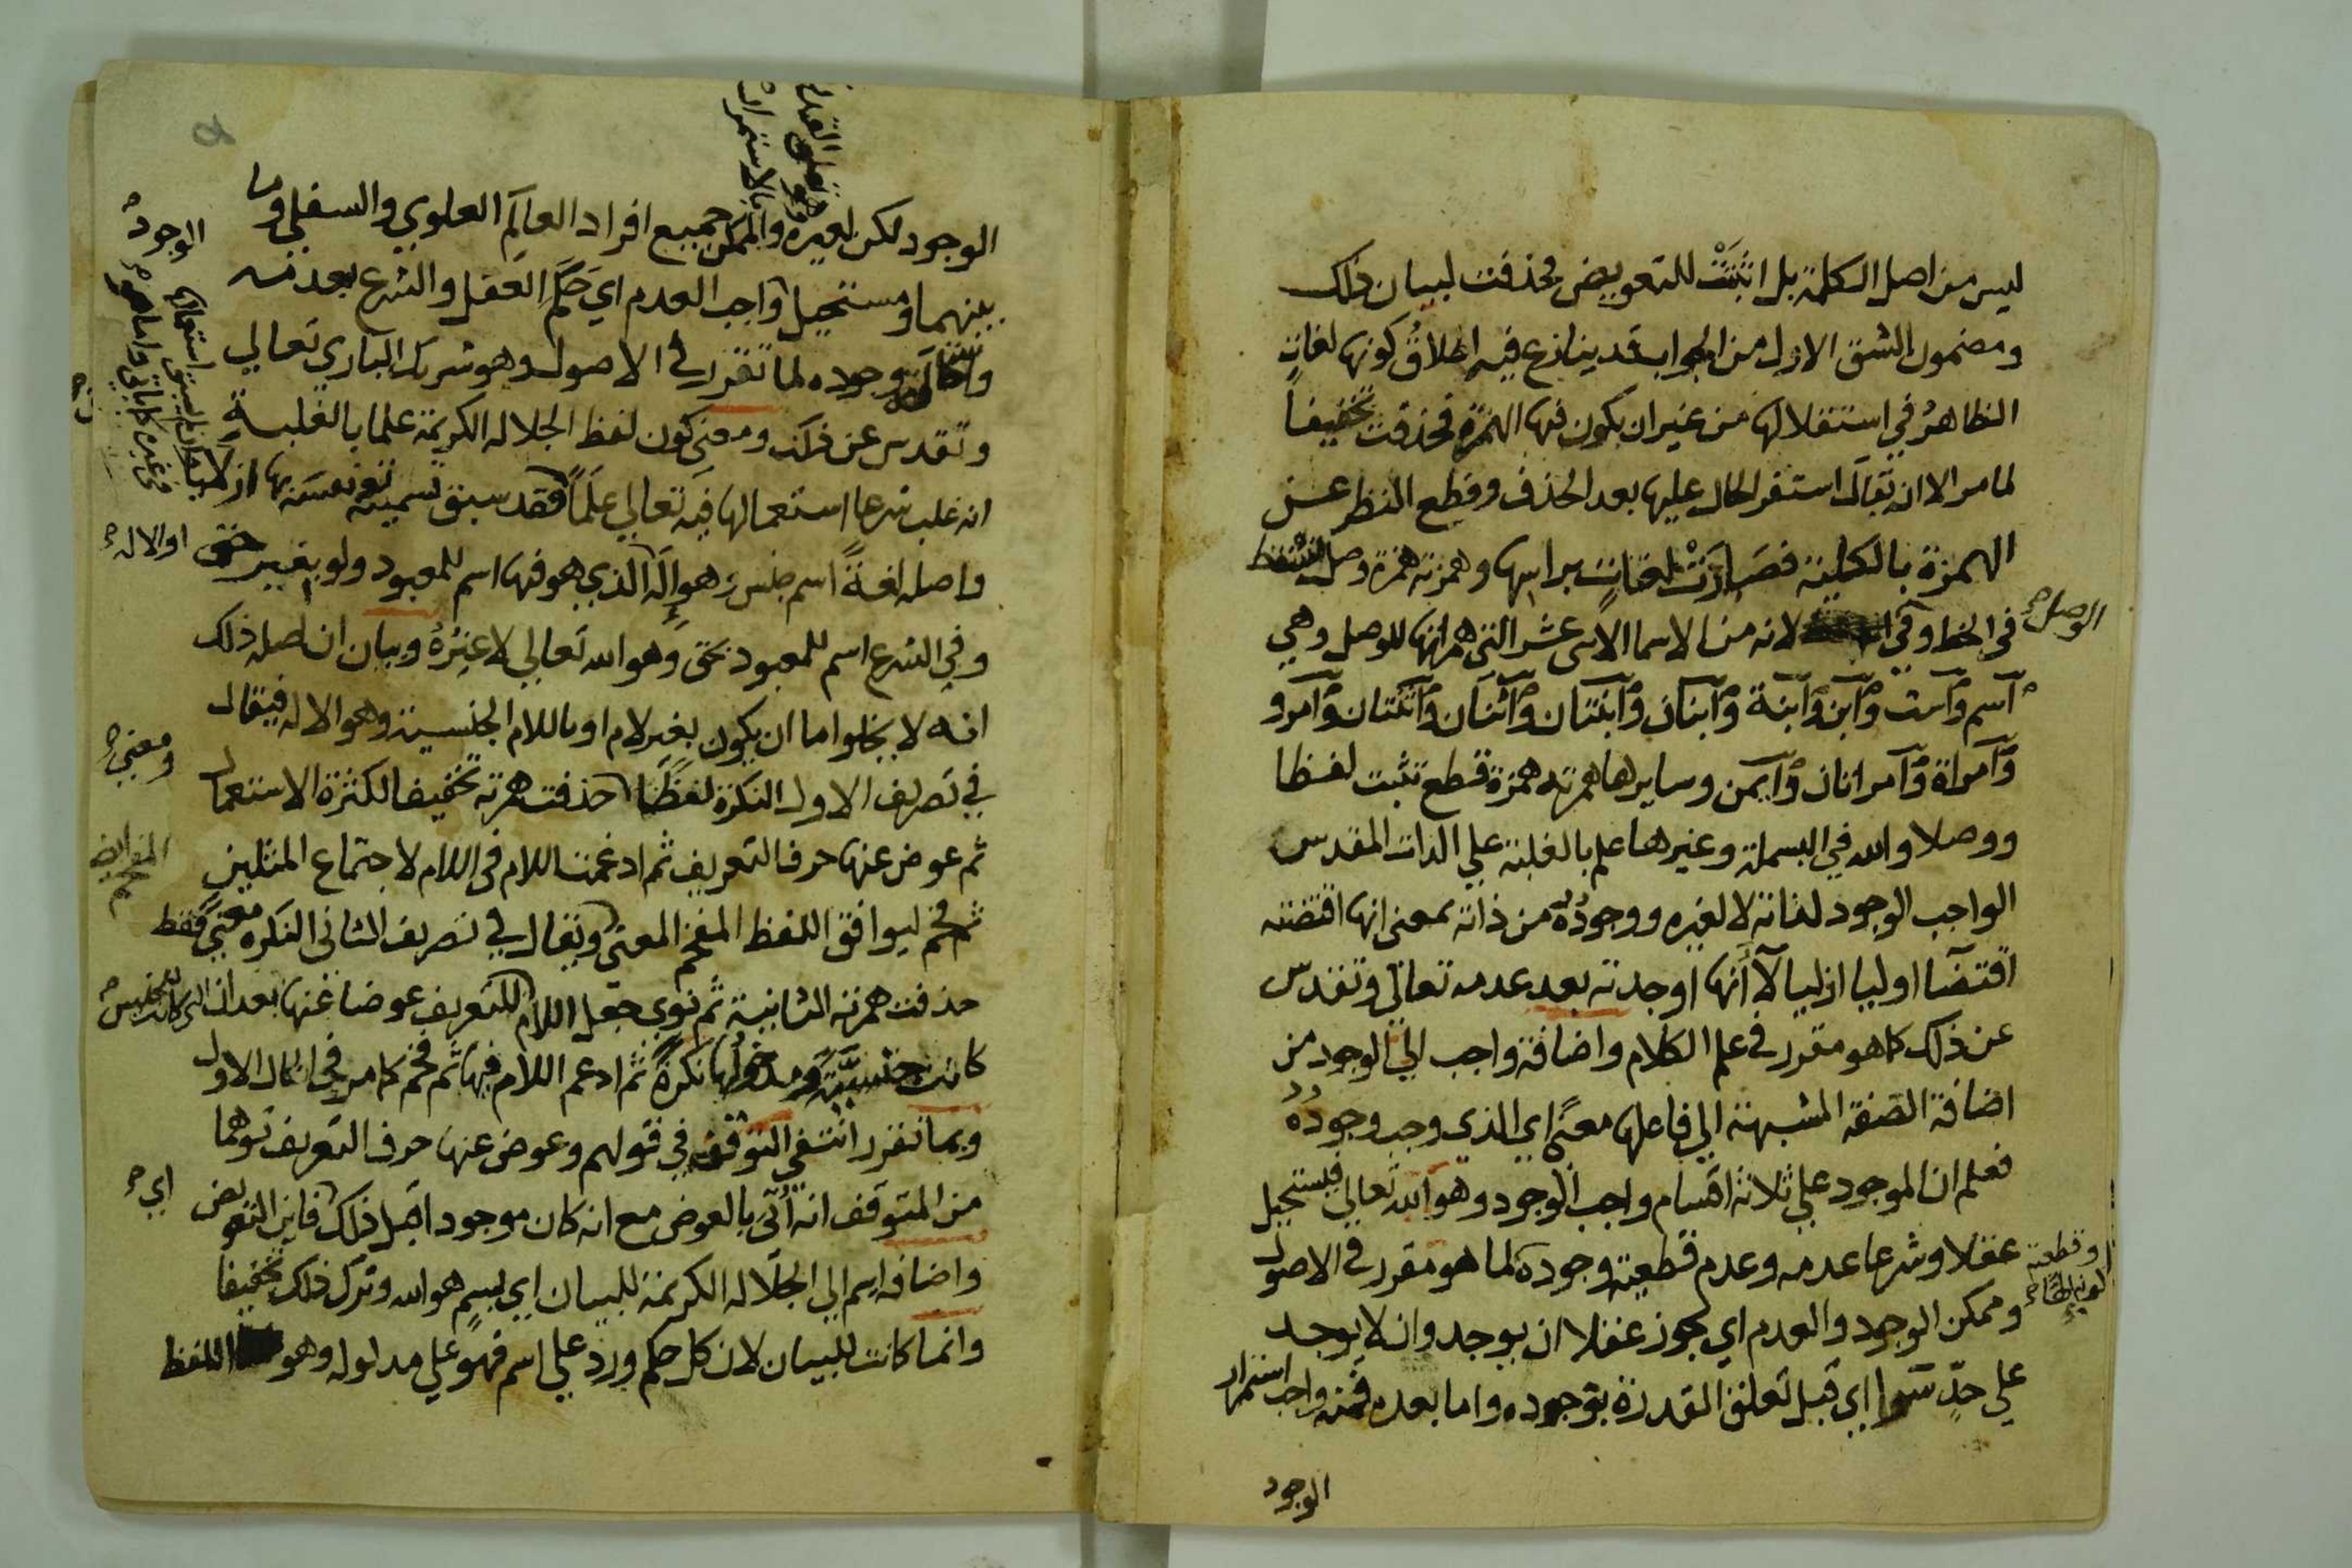 ليس من اصل الكلمة بل اثبتت للتعويض فحذفت لبيان ذلك
ومضمون الشق الاول من الجواب قد ينازع فيه اطلاق كونها لغات
الظاهر في استقلالها من غير ان يكون فيها الهمزة فحذفت تخفيفا
لما مر الا ان يقال استقر الحال عليها بعد الحذف وقطع النظر عن
الهمزة بالكلية فصارت لغات براسها وهمزته همزة وصل
الوصل
في الخط وفي لانه من الاسما الاثنى عشر التي همزاتها للوصل وهي
اسم واست وابن وابنة وابنان وابنتان واثنان واثنتان وامرو
وامراة وامراتان وايمن وسايرها همزته همزة قطع تثبت لفظا
ووصلا والله في البسملة وغيرها علم بالغلبة علي الذات المقدس
الواجب الوجود لذاته لا لغيره ووجوده من ذاته بمعنى انها اقتضته
اقتضآ اوليا ازليا لا انها اوجدته بعد عدمه تعالي وتقدس
عن ذلك كما هو مقرر في علم الكلام واضافة واجب الي الوجود من
اضافة الصفة المشبهة الي فاعلها معنى اي الذي وجب وجوده
فعلم ان الموجود علي ثلاثة اقسام واجب الوجود وهو الله تعالي فيستحيل
عقلا وشرعا عدمه وعدم قطعية وجوده لما هو مقرر في الاصول
وقطعية
وممكن الوجود والعدم اي يجوز عقلا ان يوجد وان لا يوجد
علي حد سوا اي قبل تعلق القدرة بوجوده واما بعده فمنه واجب استمرار
الوجود
وهو تعلق القدرة
بالاستمرار
الوجود لكن لغيره والممكن جميع افراد العالم العلوي والسفلي وما
الوجود
بينهما ومستحيل واجب العدم اي حكم العقل والشرع بعدمه
واستحالة وجوده لما تقرر في الاصول وهو شريك الباري تعالي
وتقدس عن ذلك ومعنى كون لفظ الجلاله الكريمة علما بالغلبة
انه غلب شرعا استعمالها فيه تعالي علما فقد سبق تسميته نفسه بها ازلا
واصله لغة اسم جنس وهو اله الذي هو فيها اسم للمعبود ولو بغير حق
او الاله
وفي الشرع اسم للمعبود بحق وهو الله تعالي لا غيره وبيان ان اصله ذلك
انه لا يخلوا اما ان يكون بغير لام او باللام الجنسية وهو الاله فيقال
ومعنى
في تصريف الاول النكرة لفظا حذفت همزته تخفيفا لكثرة الاستعمال
ثم عوض عنها حرف التعريف ثم ادغمت اللام في اللام لاجتماع المثلين
ثم فخم ليوافق اللفظ المفخم المعنى ويقال في تصريف الثاني النكره معنى فقط
حذفت همزته الثانية ثم نوي جعل اللام للتعريف عوضا عنها بعد ان
كانت جنسية ومدخولها نكرة ثم ادغم اللام فيها ثم فخم كما مر في الحال الاول
وبما تقرر انتفي التوقف في قولهم وعوض عنها حرف التعريف توهما
من المتوقف انه اتي بالعوض مع انه كان موجود اقبل ذلك فاين التعويض
اي
واضافه اسم الي الجلاله الكريمة للبيان اي بسم هو الله وترك ذلك تخفيفا
وانما كانت للبيان لان كل حكم ورد علي اسم فهو علي مدلوله وهو اللفظ